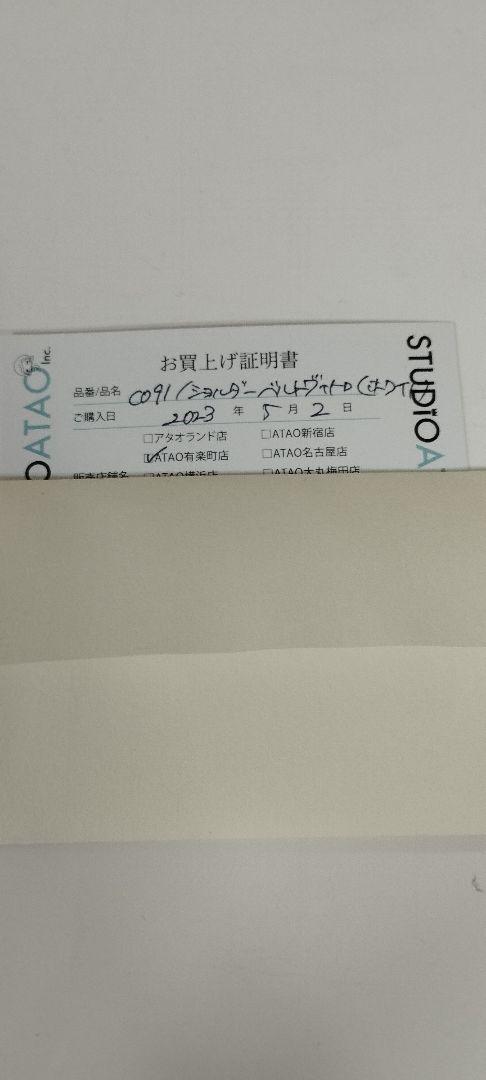 お買上げ証明書
品番/品名 CO91/ショルダーベルトヴィトロ(ホワイ
ご購入日 2023 年 5 月 2 日
□アタオランド店 □ATAO新宿店
☑ATAO有楽町店 □ATAO名古屋店
販売店舗名 □ATAO横浜店 □ATAO大丸梅田店
OATAO Inc.
STUDIO A